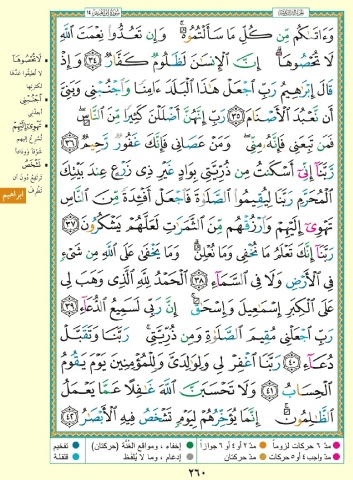 سورة إبراهيم ١٤
وَءَاتَىٰكُم مِّن كُلِّ مَا سَأَلْتُمُوهُ ۚ وَإِن تَعُدُّوا۟ نِعْمَتَ ٱللَّهِ
لَا تُحْصُوهَآ ۗ إِنَّ ٱلْإِنسَٰنَ لَظَلُومٌ كَفَّارٌ ٣٤ وَإِذْ
قَالَ إِبْرَٰهِيمُ رَبِّ ٱجْعَلْ هَٰذَا ٱلْبَلَدَ ءَامِنًا وَٱجْنُبْنِى وَبَنِىَّ
أَن نَّعْبُدَ ٱلْأَصْنَامَ ٣٥ رَبِّ إِنَّهُنَّ أَضْلَلْنَ كَثِيرًا مِّنَ ٱلنَّاسِ ۖ
فَمَن تَبِعَنِى فَإِنَّهُۥ مِنِّى ۖ وَمَنْ عَصَانِى فَإِنَّكَ غَفُورٌ رَّحِيمٌ ٣٦
رَّبَّنَآ إِنِّىٓ أَسْكَنتُ مِن ذُرِّيَّتِى بِوَادٍ غَيْرِ ذِى زَرْعٍ عِندَ بَيْتِكَ
ٱلْمُحَرَّمِ رَبَّنَا لِيُقِيمُوا۟ ٱلصَّلَوٰةَ فَٱجْعَلْ أَفْـِٔدَةً مِّنَ ٱلنَّاسِ
تَهْوِىٓ إِلَيْهِمْ وَٱرْزُقْهُم مِّنَ ٱلثَّمَرَٰتِ لَعَلَّهُمْ يَشْكُرُونَ ٣٧
رَبَّنَآ إِنَّكَ تَعْلَمُ مَا نُخْفِى وَمَا نُعْلِنُ ۗ وَمَا يَخْفَىٰ عَلَى ٱللَّهِ مِن شَىْءٍ
فِى ٱلْأَرْضِ وَلَا فِى ٱلسَّمَآءِ ٣٨ ٱلْحَمْدُ لِلَّهِ ٱلَّذِى وَهَبَ لِى
عَلَى ٱلْكِبَرِ إِسْمَٰعِيلَ وَإِسْحَٰقَ ۚ إِنَّ رَبِّى لَسَمِيعُ ٱلدُّعَآءِ ٣٩
رَبِّ ٱجْعَلْنِى مُقِيمَ ٱلصَّلَوٰةِ وَمِن ذُرِّيَّتِى ۚ رَبَّنَا وَتَقَبَّلْ
دُعَآءِ ٤٠ رَبَّنَا ٱغْفِرْ لِى وَلِوَٰلِدَىَّ وَلِلْمُؤْمِنِينَ يَوْمَ يَقُومُ
ٱلْحِسَابُ ٤١ وَلَا تَحْسَبَنَّ ٱللَّهَ غَٰفِلًا عَمَّا يَعْمَلُ
ٱلظَّٰلِمُونَ ۚ إِنَّمَا يُؤَخِّرُهُمْ لِيَوْمٍ تَشْخَصُ فِيهِ ٱلْأَبْصَٰرُ ٤٢
لَا تُحْصُوهَا
لا تطيقوا عدّها
لكثرتها
ٱجْنُبْنِى
أبعدني
تَهْوِىٓ إِلَيْهِمْ
تُسرع إليهم
شوقا وودادا
تَشْخَصُ
ترتفع دون أن
تطرف
ابراهيم
مدّ ٦ حركات لزوماً
مدّ ٢ أو ٤ أو ٦ جوازاً
إخفاء، ومواقع الغُنَّة (حركتان)
تفخيم
مدّ واجب ٤ أو ٥ حركات
مدّ حركتان
إدغام، وما لا يُلفَظ
قلقلة
٢٦٠